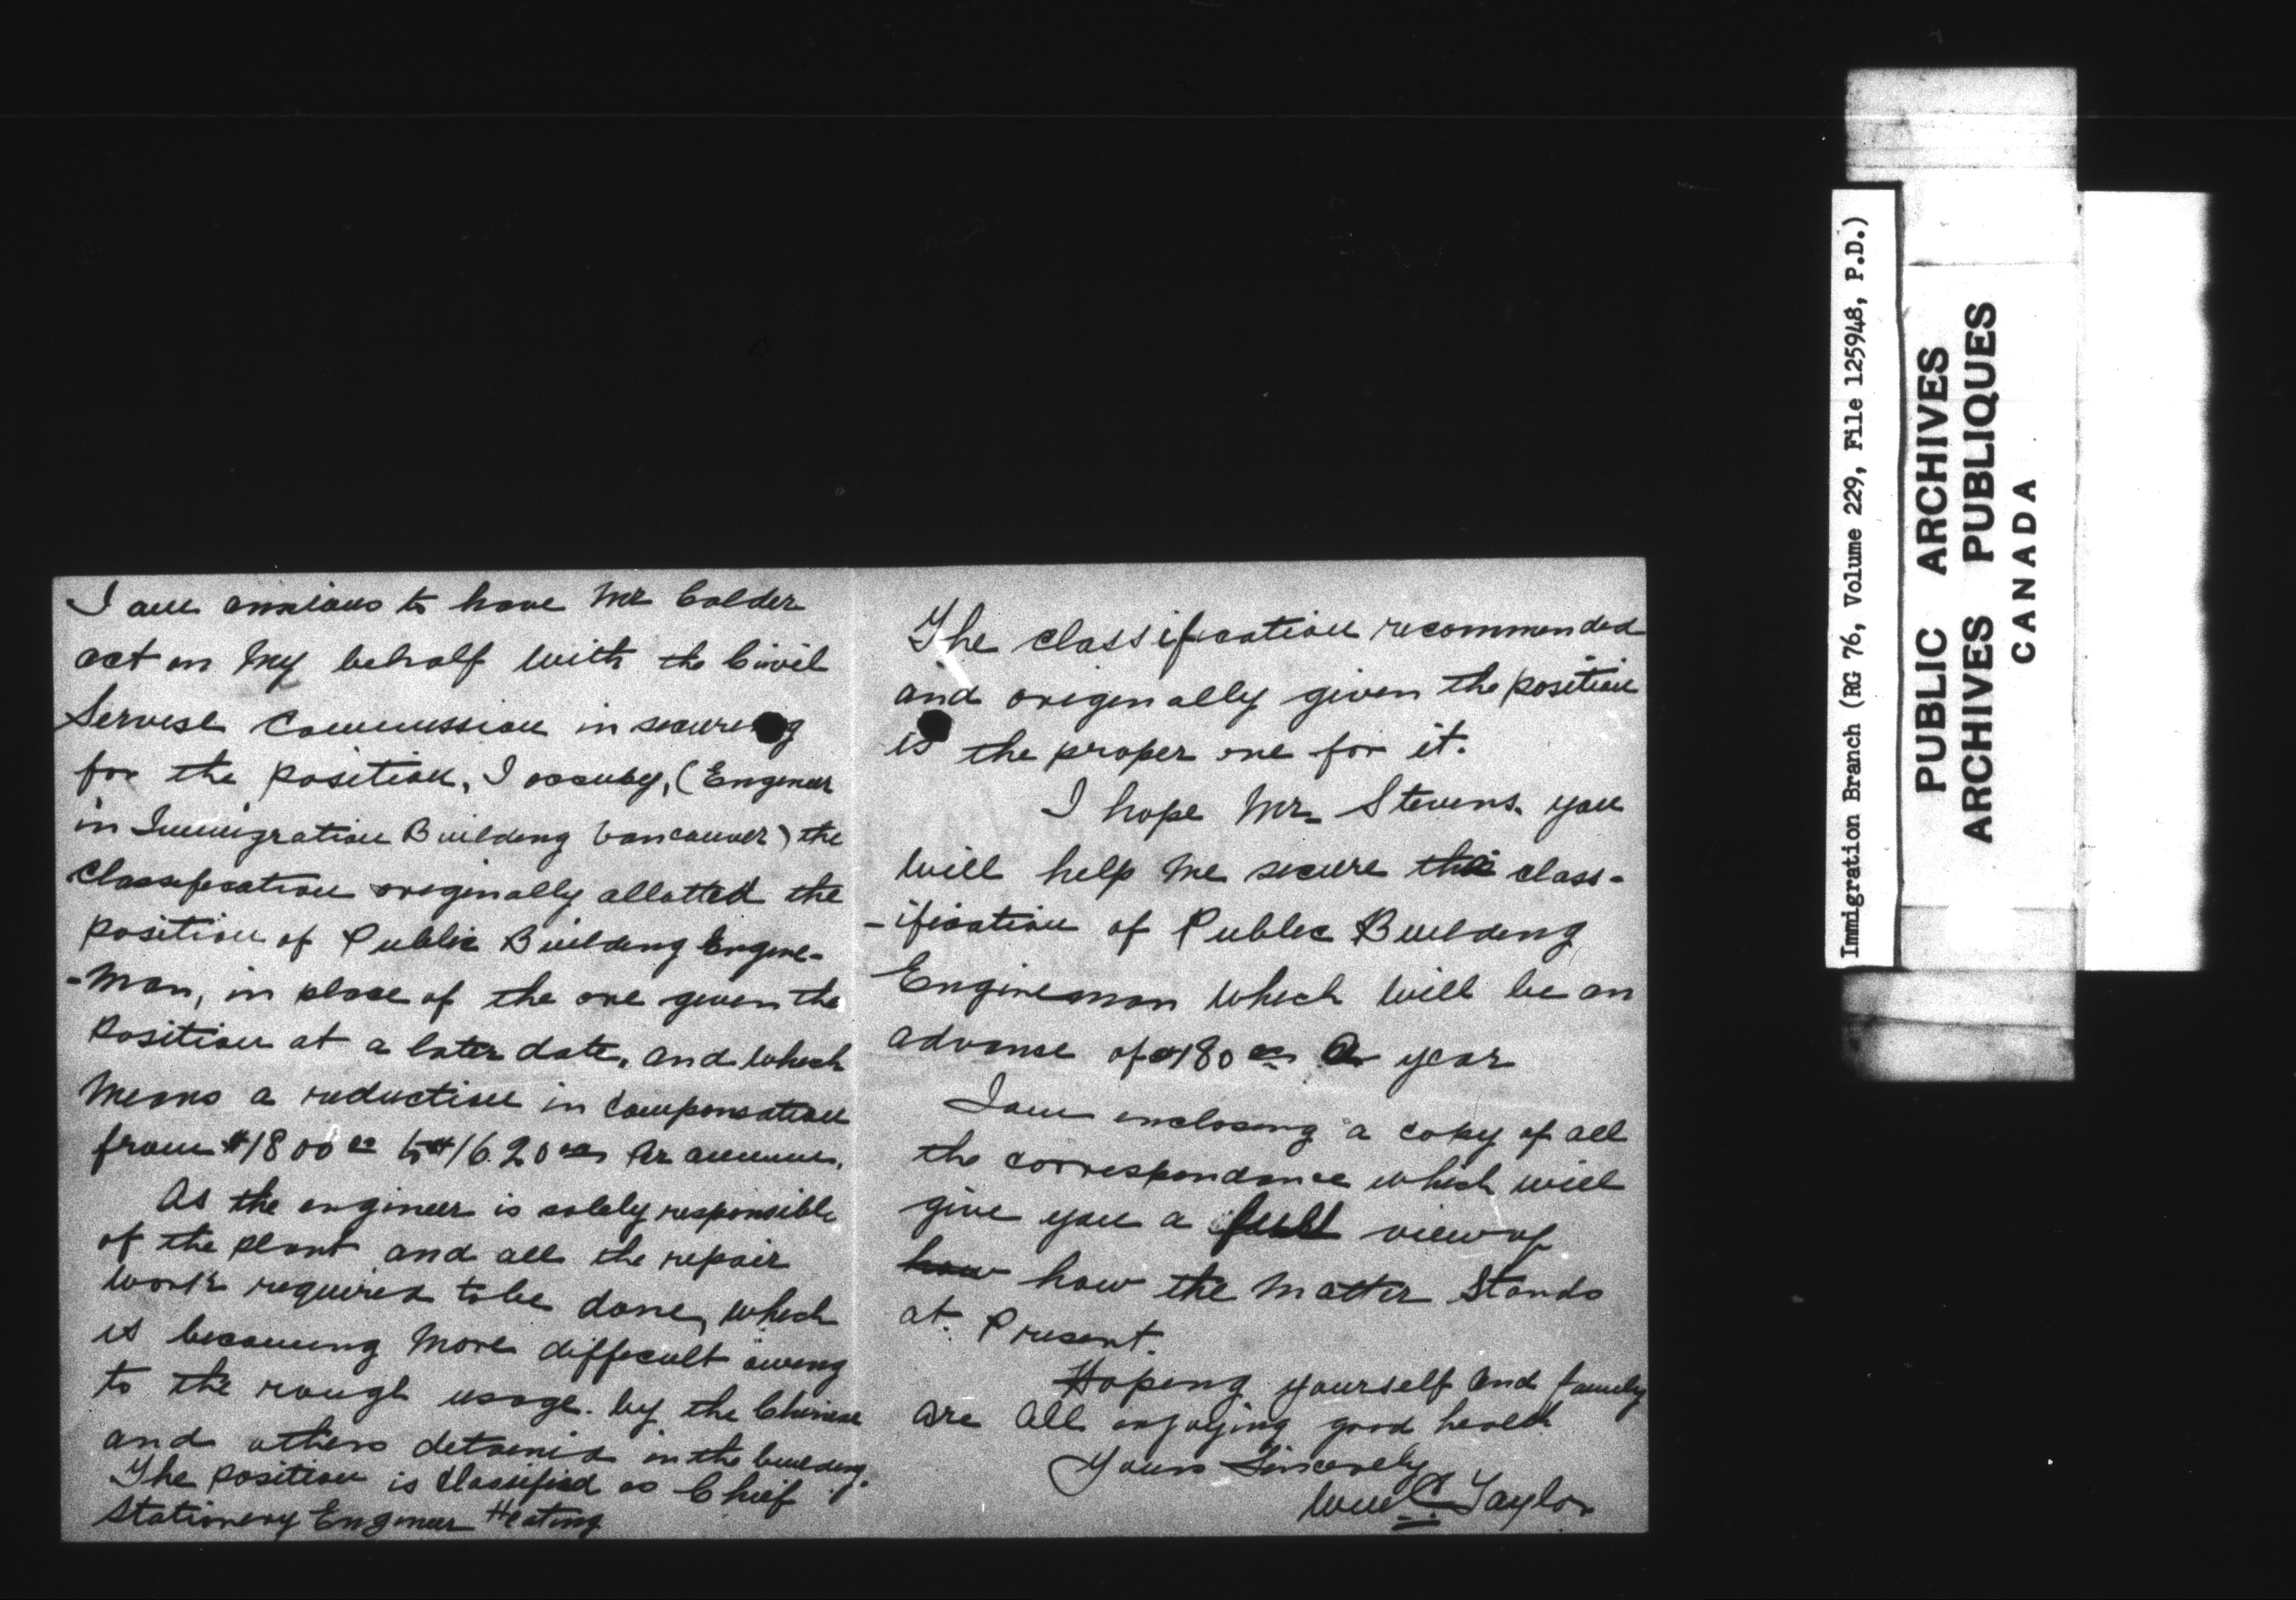 I am anxious to have Mr Calder
act on my behalf with the Civil
Servise Commission in securing
for the position, I occupy, (Engineer
in Immigration Building Vancouver) the
Classification originally allotted the
position of Public Building Engine-
-man, in place of the one given the
position at a later date, and which
means a reduction in compensation
from $1800 00 to $1620 00 per annum.
As the engineer is solely responsible
of the plant and all the repair
work required to be done, which
is becoming more difficult owing
to the rough usage by the Chinese
and others detained in the building.
The position is classified as Chief
Stationery Engineer Heating
The classification recommended
and originally given the position
is the proper one for it.
I hope Mr. Stevens. you
will help me secure the class-
-ification of Public Building
Engineman which will be an
advanse of $180 00 a year
I am enclosing a copy of all
the correspondance which will
give you a full view of
how how the matter stands
at Present.
Hoping yourself and family
are all enjoying good health
Yours Sincerely
Wm C. Taylor
Immigration Branch (RG 76, Volume 229, File 125948, P.D.)
PUBLIC ARCHIVES
ARCHIVES PUBLIQUES
CANADA